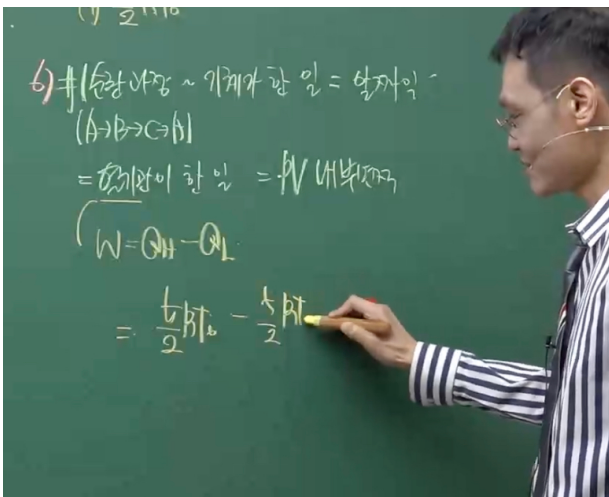 6) #1순환과정 ~ 기체가 한 일 = 알짜일
(A→B→C→A)
= 열기관이 한 일 = PV 내부면적
W = Q_H - Q_L
= \frac{t}{2}RT_0 - \frac{t}{2}RT